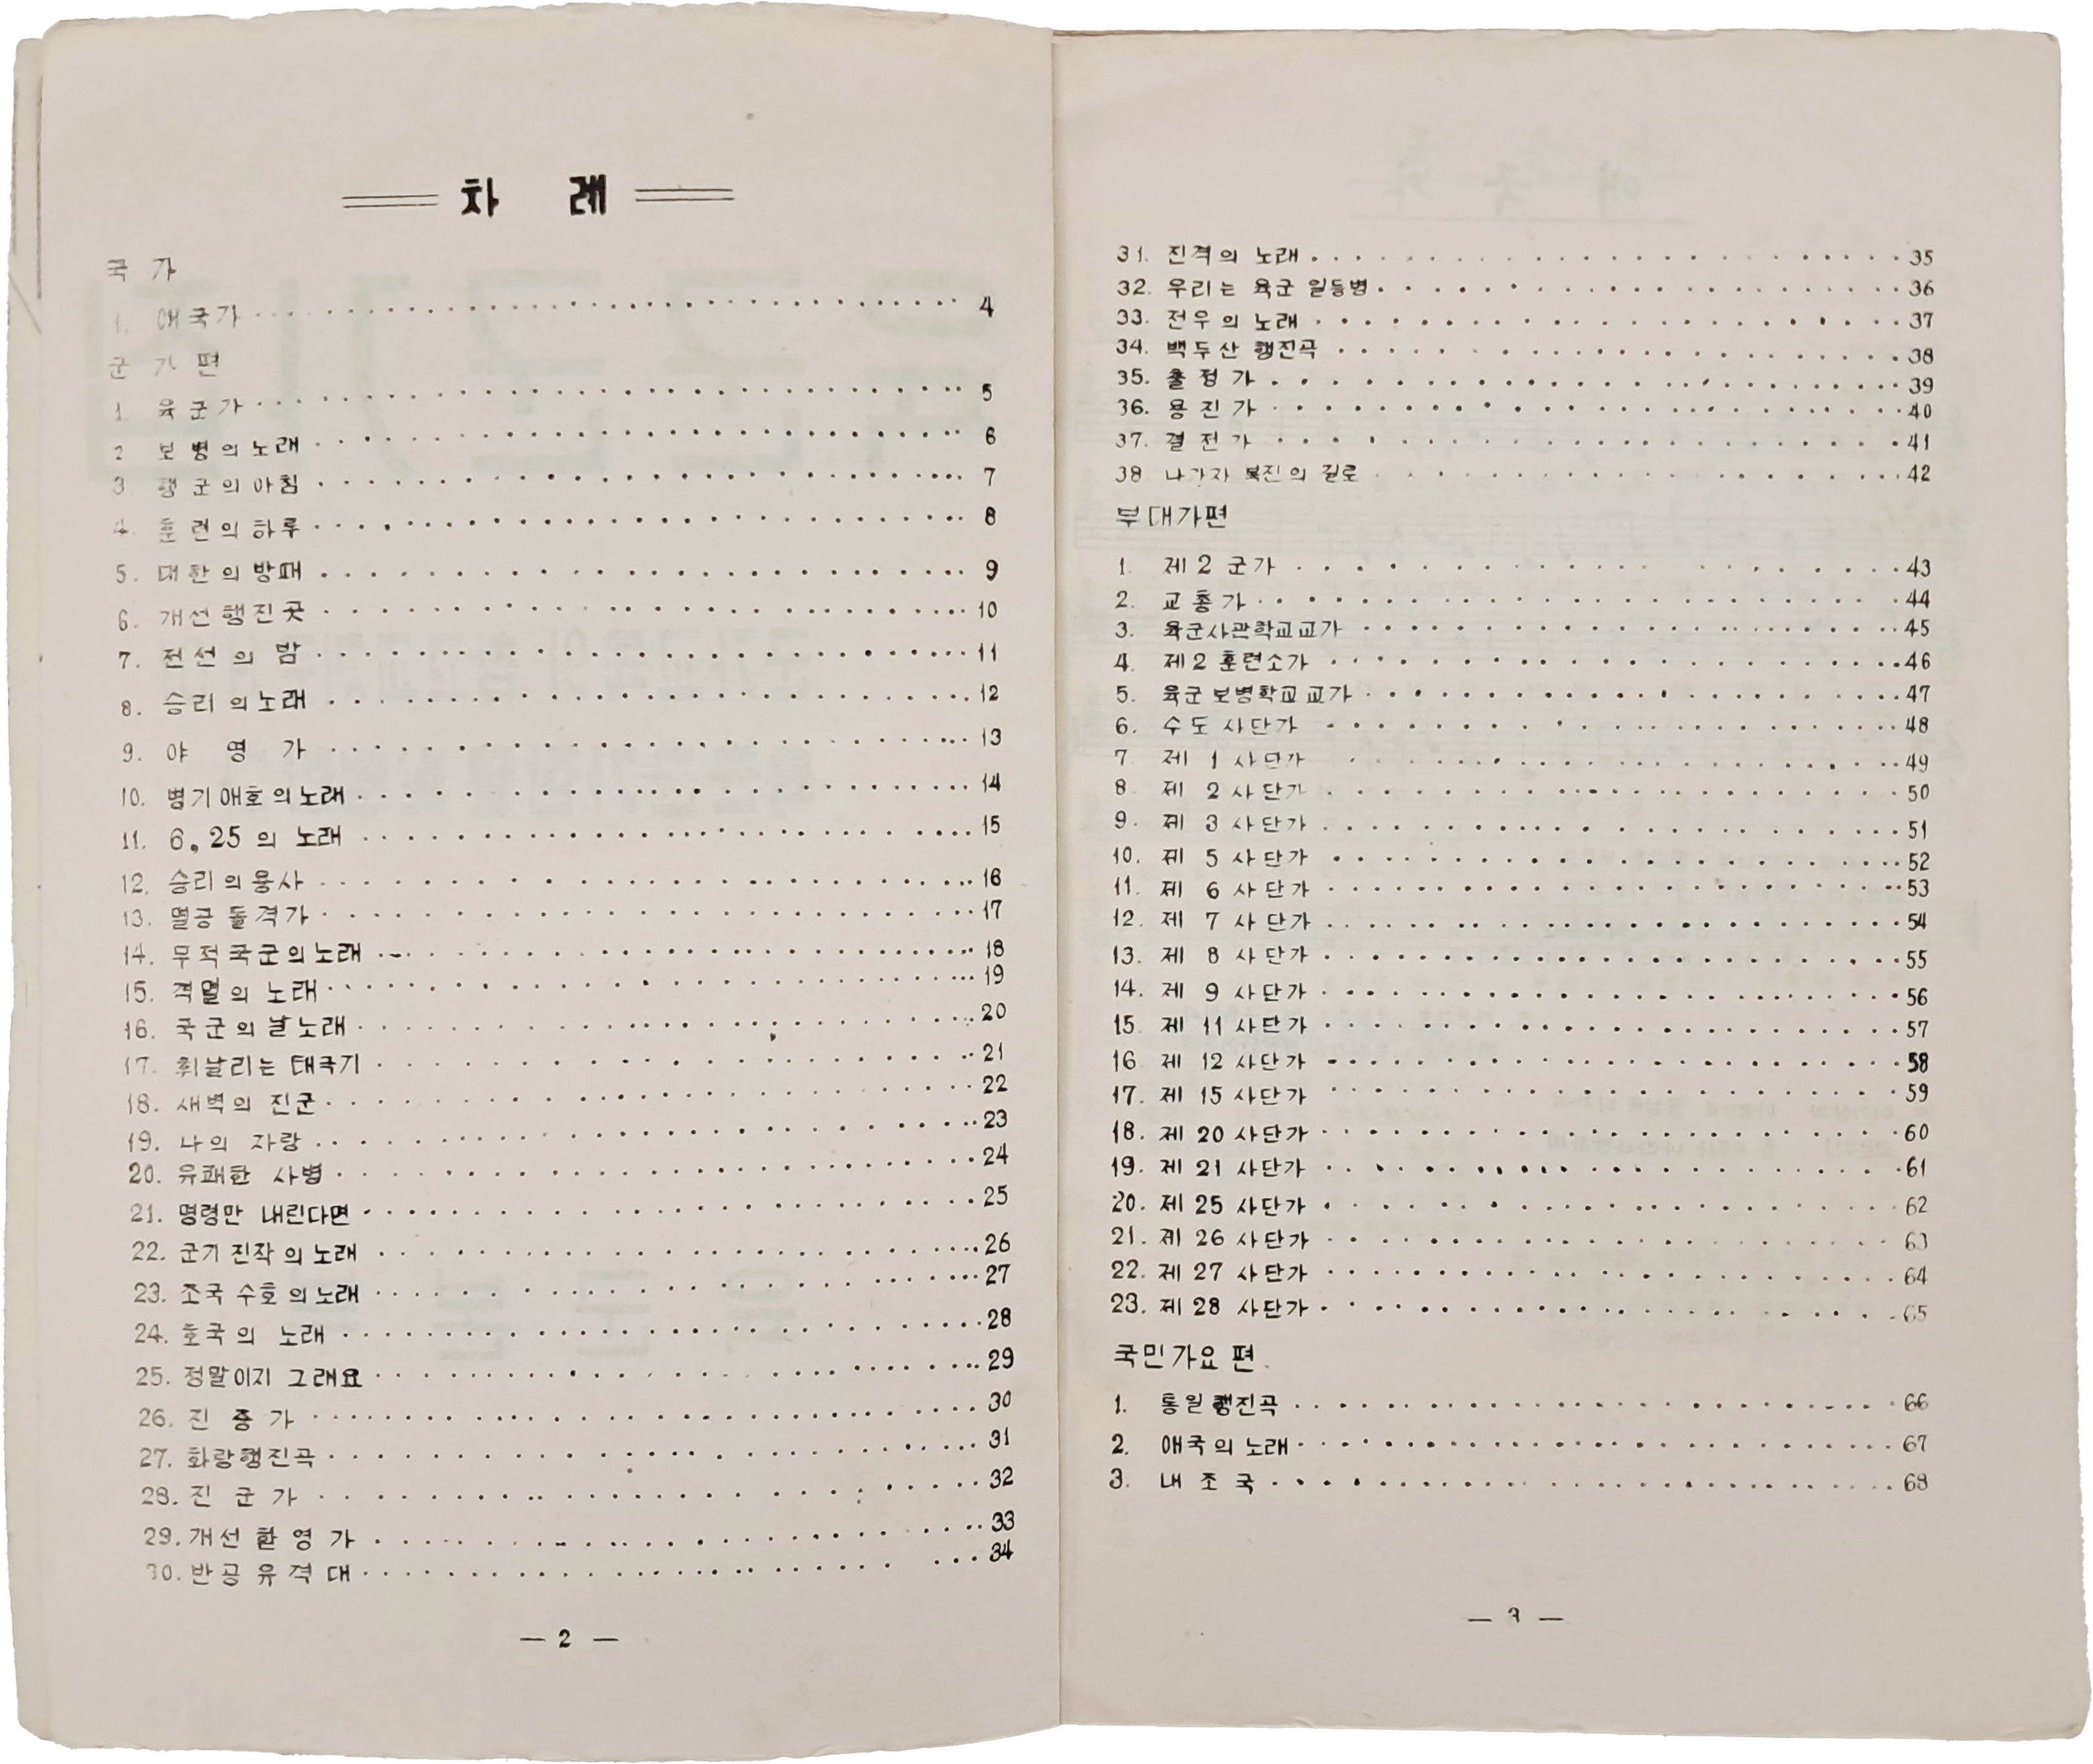 차 례
국 가
1. 애국가 4
군 가 편
1. 육군가 5
2 보병의노래 6
3. 행군의아침 7
4. 훈련의하루 8
5. 대한의방패 9
6. 개선행진곳 10
7. 전선의 밤 11
8. 승리의노래 12
9. 야 영 가 13
10. 병기애호의노래 14
11. 6.25의 노래 15
12. 승리의용사 16
13. 멸공돌격가 17
14. 무적국군의노래 18
15. 격멸의 노래 19
16. 국군의날노래 20
17. 휘날리는 태극기 21
18. 새벽의 진군 22
19. 나의 자랑 23
20. 유쾌한 사병 24
21. 명령만 내린다면 25
22. 군기진작의노래 26
23. 조국수호의노래 27
24. 호국의 노래 28
25. 정말이지 그래요 29
26. 진 중 가 30
27. 화랑행진곡 31
28. 진 군 가 32
29. 개선환영가 33
30. 반공유격대 34
— 2 —
31. 진격의 노래 35
32. 우리는 육군 일등병 36
33. 전우의 노래 37
34. 백두산 행진곡 38
35. 출정가 39
36. 용진가 40
37. 결전가 41
38 나가자 북진의 길로 42
부대가편
1. 제2군가 43
2. 교총가 44
3. 육군사관학교교가 45
4. 제2훈련소가 46
5. 육군보병학교교가 47
6. 수도사단가 48
7 제 1 사단가 49
8 제 2 사단가 50
9. 제 3 사단가 51
10. 제 5 사단가 52
11. 제 6 사단가 53
12. 제 7 사단가 54
13. 제 8 사단가 55
14. 제 9 사단가 56
15 제 11 사단가 57
16 제 12 사단가 58
17. 제 15 사단가 59
18. 제 20 사단가 60
19. 제 21 사단가 61
20. 제 25 사단가 62
21. 제 26 사단가 63
22. 제 27 사단가 64
23. 제 28 사단가 65
국민가요 편
1. 통일행진곡 66
2. 애국의노래 67
3. 내 조 국 68
— 3 —